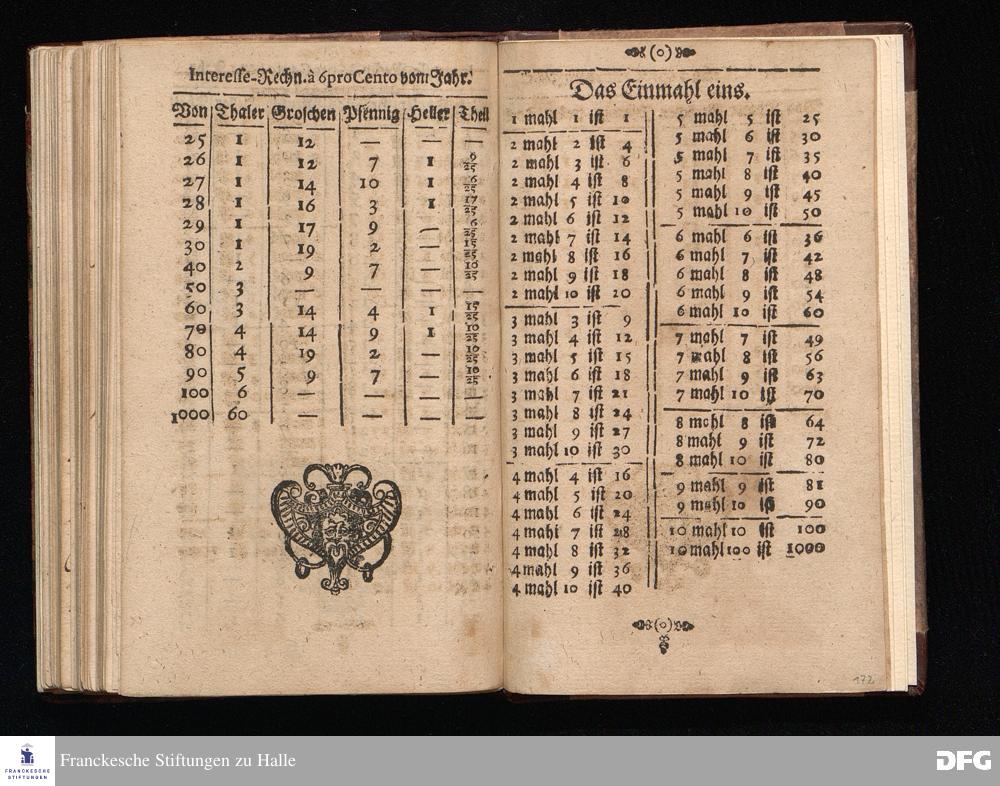 Interesse-Rechn. à 6 pro Cento vom Jahr.
Von Thaler Groschen Pfennig Heller Theil
25 1 12 — — —
26 1 12 7 1
27 1 14 10 1 6/25
28 1 16 3 1 17/25
29 1 17 9 —
30 1 19 2 — 15/25
40 2 9 7 — 10/25
50 3 — — — —
60 3 14 4 1 15/25
70 4 14 9 1 10/25
80 4 19 2 — 10/25
90 5 9 7 — 10/25
100 6 — — — —
1000 60 — — — —
(o)
Das Einmahl eins.
1 mahl 1 ist 1
2 mahl 2 ist 4
2 mahl 3 ist 6
2 mahl 4 ist 8
2 mahl 5 ist 10
2 mahl 6 ist 12
2 mahl 7 ist 14
2 mahl 8 ist 16
2 mahl 9 ist 18
2 mahl 10 ist 20
3 mahl 3 ist 9
3 mahl 4 ist 12
3 mahl 5 ist 15
3 mahl 6 ist 18
3 mahl 7 ist 21
3 mahl 8 ist 24
3 mahl 9 ist 27
3 mahl 10 ist 30
4 mahl 4 ist 16
4 mahl 5 ist 20
4 mahl 6 ist 24
4 mahl 7 ist 28
4 mahl 8 ist 32
4 mahl 9 ist 36
4 mahl 10 ist 40
5 mahl 5 ist 25
5 mahl 6 ist 30
5 mahl 7 ist 35
5 mahl 8 ist 40
5 mahl 9 ist 45
5 mahl 10 ist 50
6 mahl 6 ist 36
6 mahl 7 ist 42
6 mahl 8 ist 48
6 mahl 9 ist 54
6 mahl 10 ist 60
7 mahl 7 ist 49
7 mahl 8 ist 56
7 mahl 9 ist 63
7 mahl 10 ist 70
8 mahl 8 ist 64
8 mahl 9 ist 72
8 mahl 10 ist 80
9 mahl 9 ist 81
9 mahl 10 ist 90
10 mahl 10 ist 100
10 mahl 100 ist 1000
(o)
172
FRANCKESCHE
STIFTUNGEN
Franckesche Stiftungen zu Halle
DFG